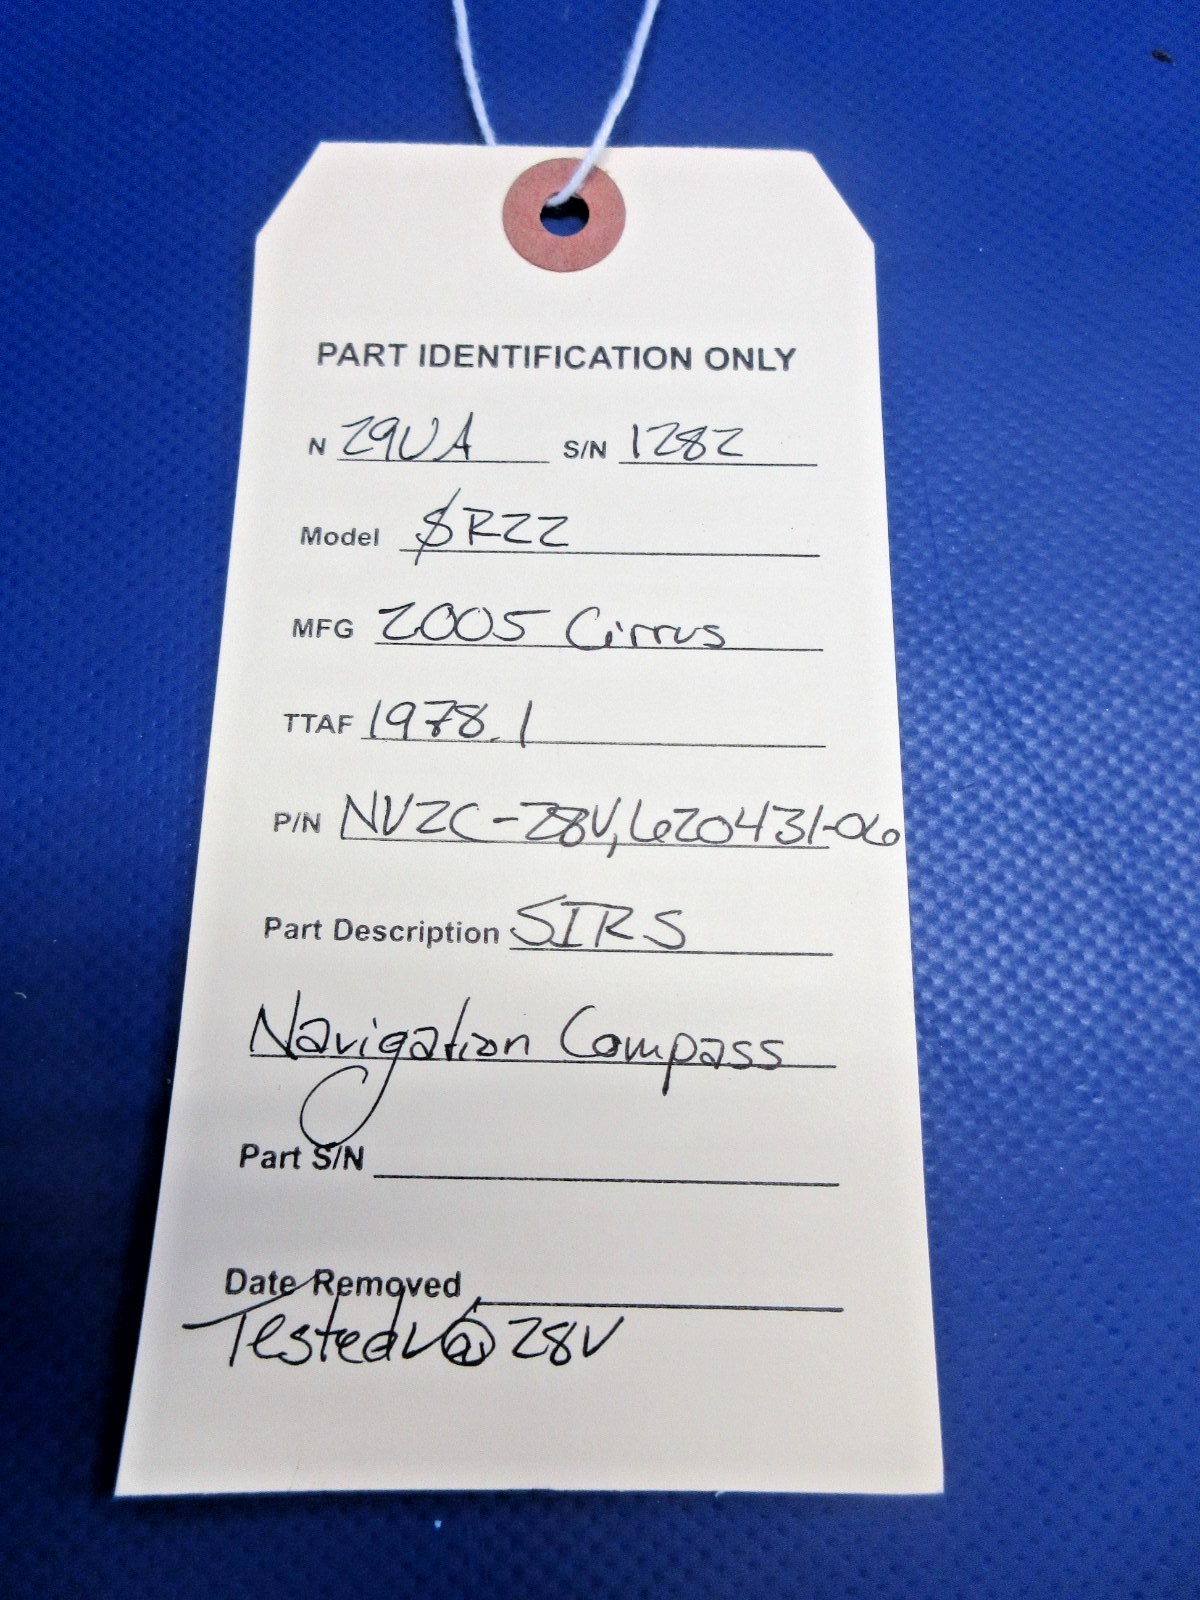 PART IDENTIFICATION ONLY
N 29UA S/N 1282
Model SR22
MFG 2005 Cirrus
TTAF 1978.1
P/N NV2C-28V, 620431-06
Part Description SIRS
Navigation Compass
Part S/N
Date Removed
Tested ✓ @ 28V